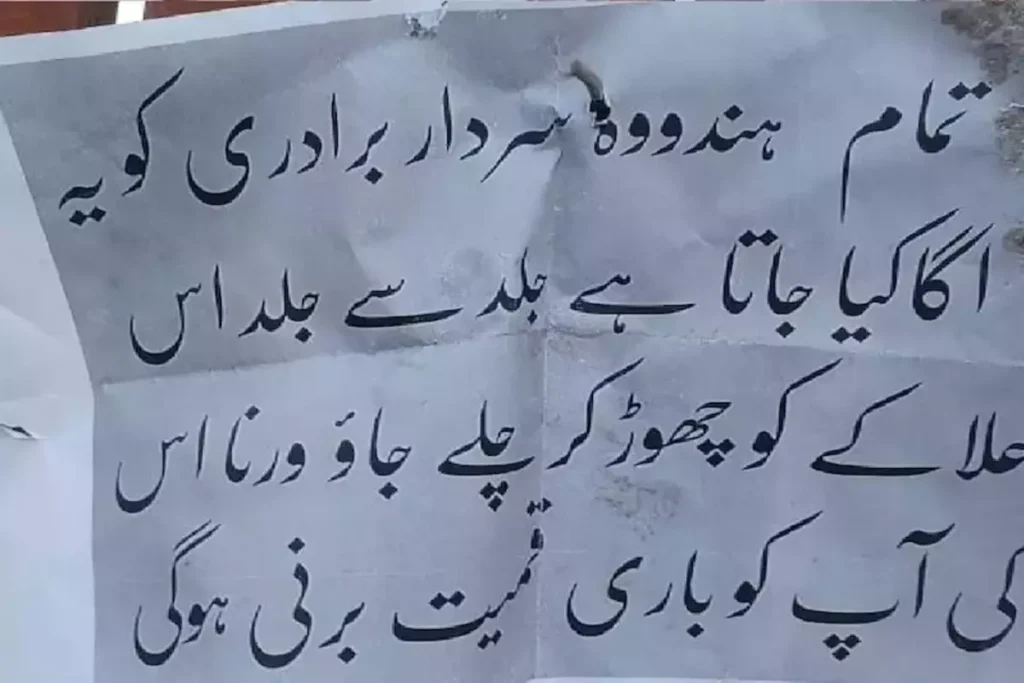 تمام ہندو وہ سردار برادری کو یہ
اگا کیا جاتا ہے جلد سے جلد اس
حلا کے کو چھوڑ کر چلے جاؤ ورنا اس
کی آپ کو باری قمیت برنی ہوگی